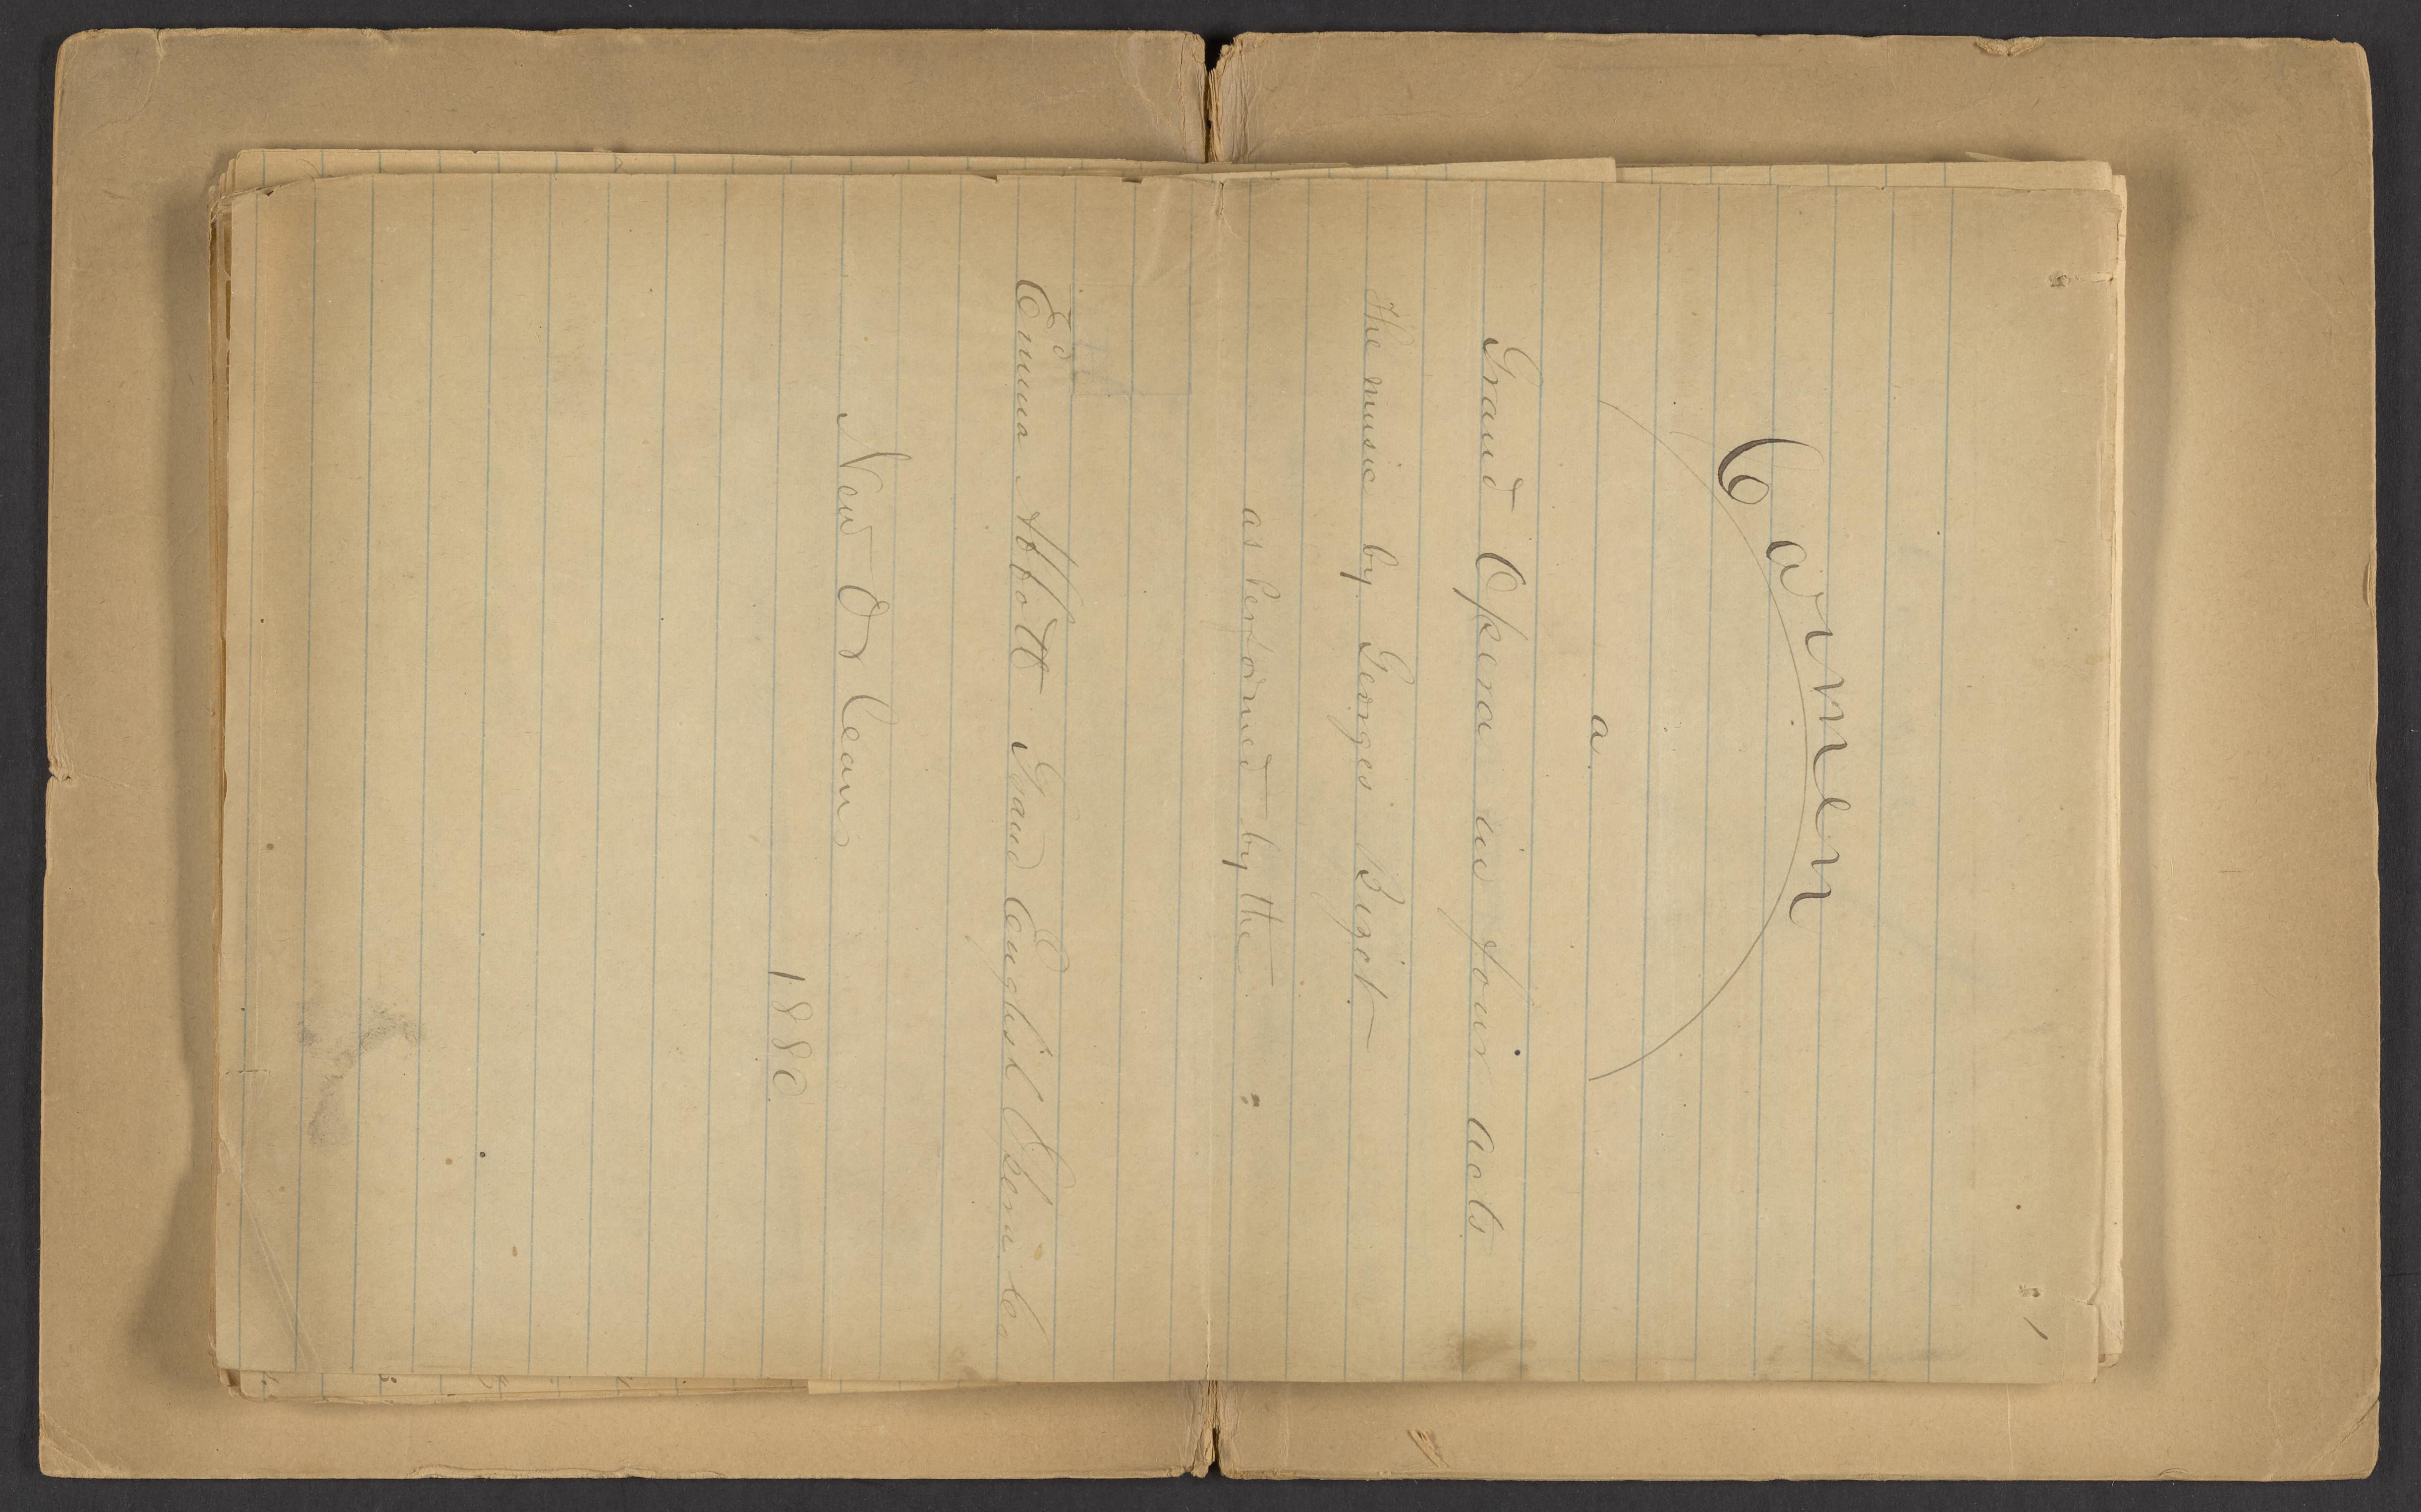 Carmen
a
Grand Opera in four acts
The music by Georges Bizet
as Performed by the
Emma Abbott Grand English Opera Co
New Orleans
1880